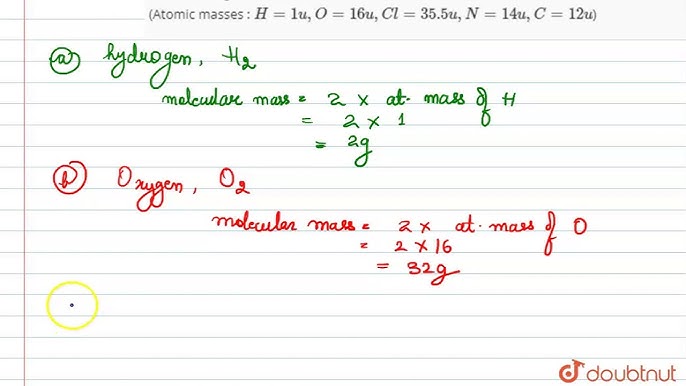 (Atomic masses : H = 1u, O = 16u, Cl = 35.5u, N = 14u, C = 12u)
(a) hydrogen, H2
molecular mass = 2 x at. mass of H
= 2 x 1
= 2g
(b) Oxygen, O2
molecular mass = 2 x at. mass of O
= 2 x 16
= 32g
doubtnut